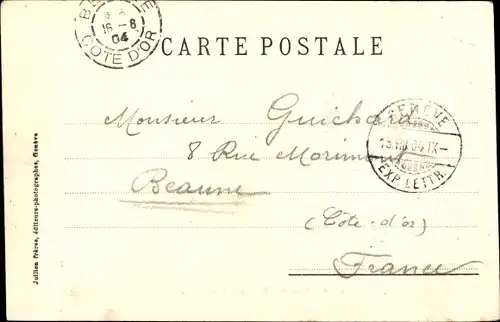 BEAUNE
16-8
04
COTE D'OR
CARTE POSTALE
Monsieur Guichard
8 Rue
Beaune
(Côte-d'or)
France
GENÈVE
15 VIII 04 IX-
EXP. LETTR.
Jullien frères, éditeurs-photographes, Genève